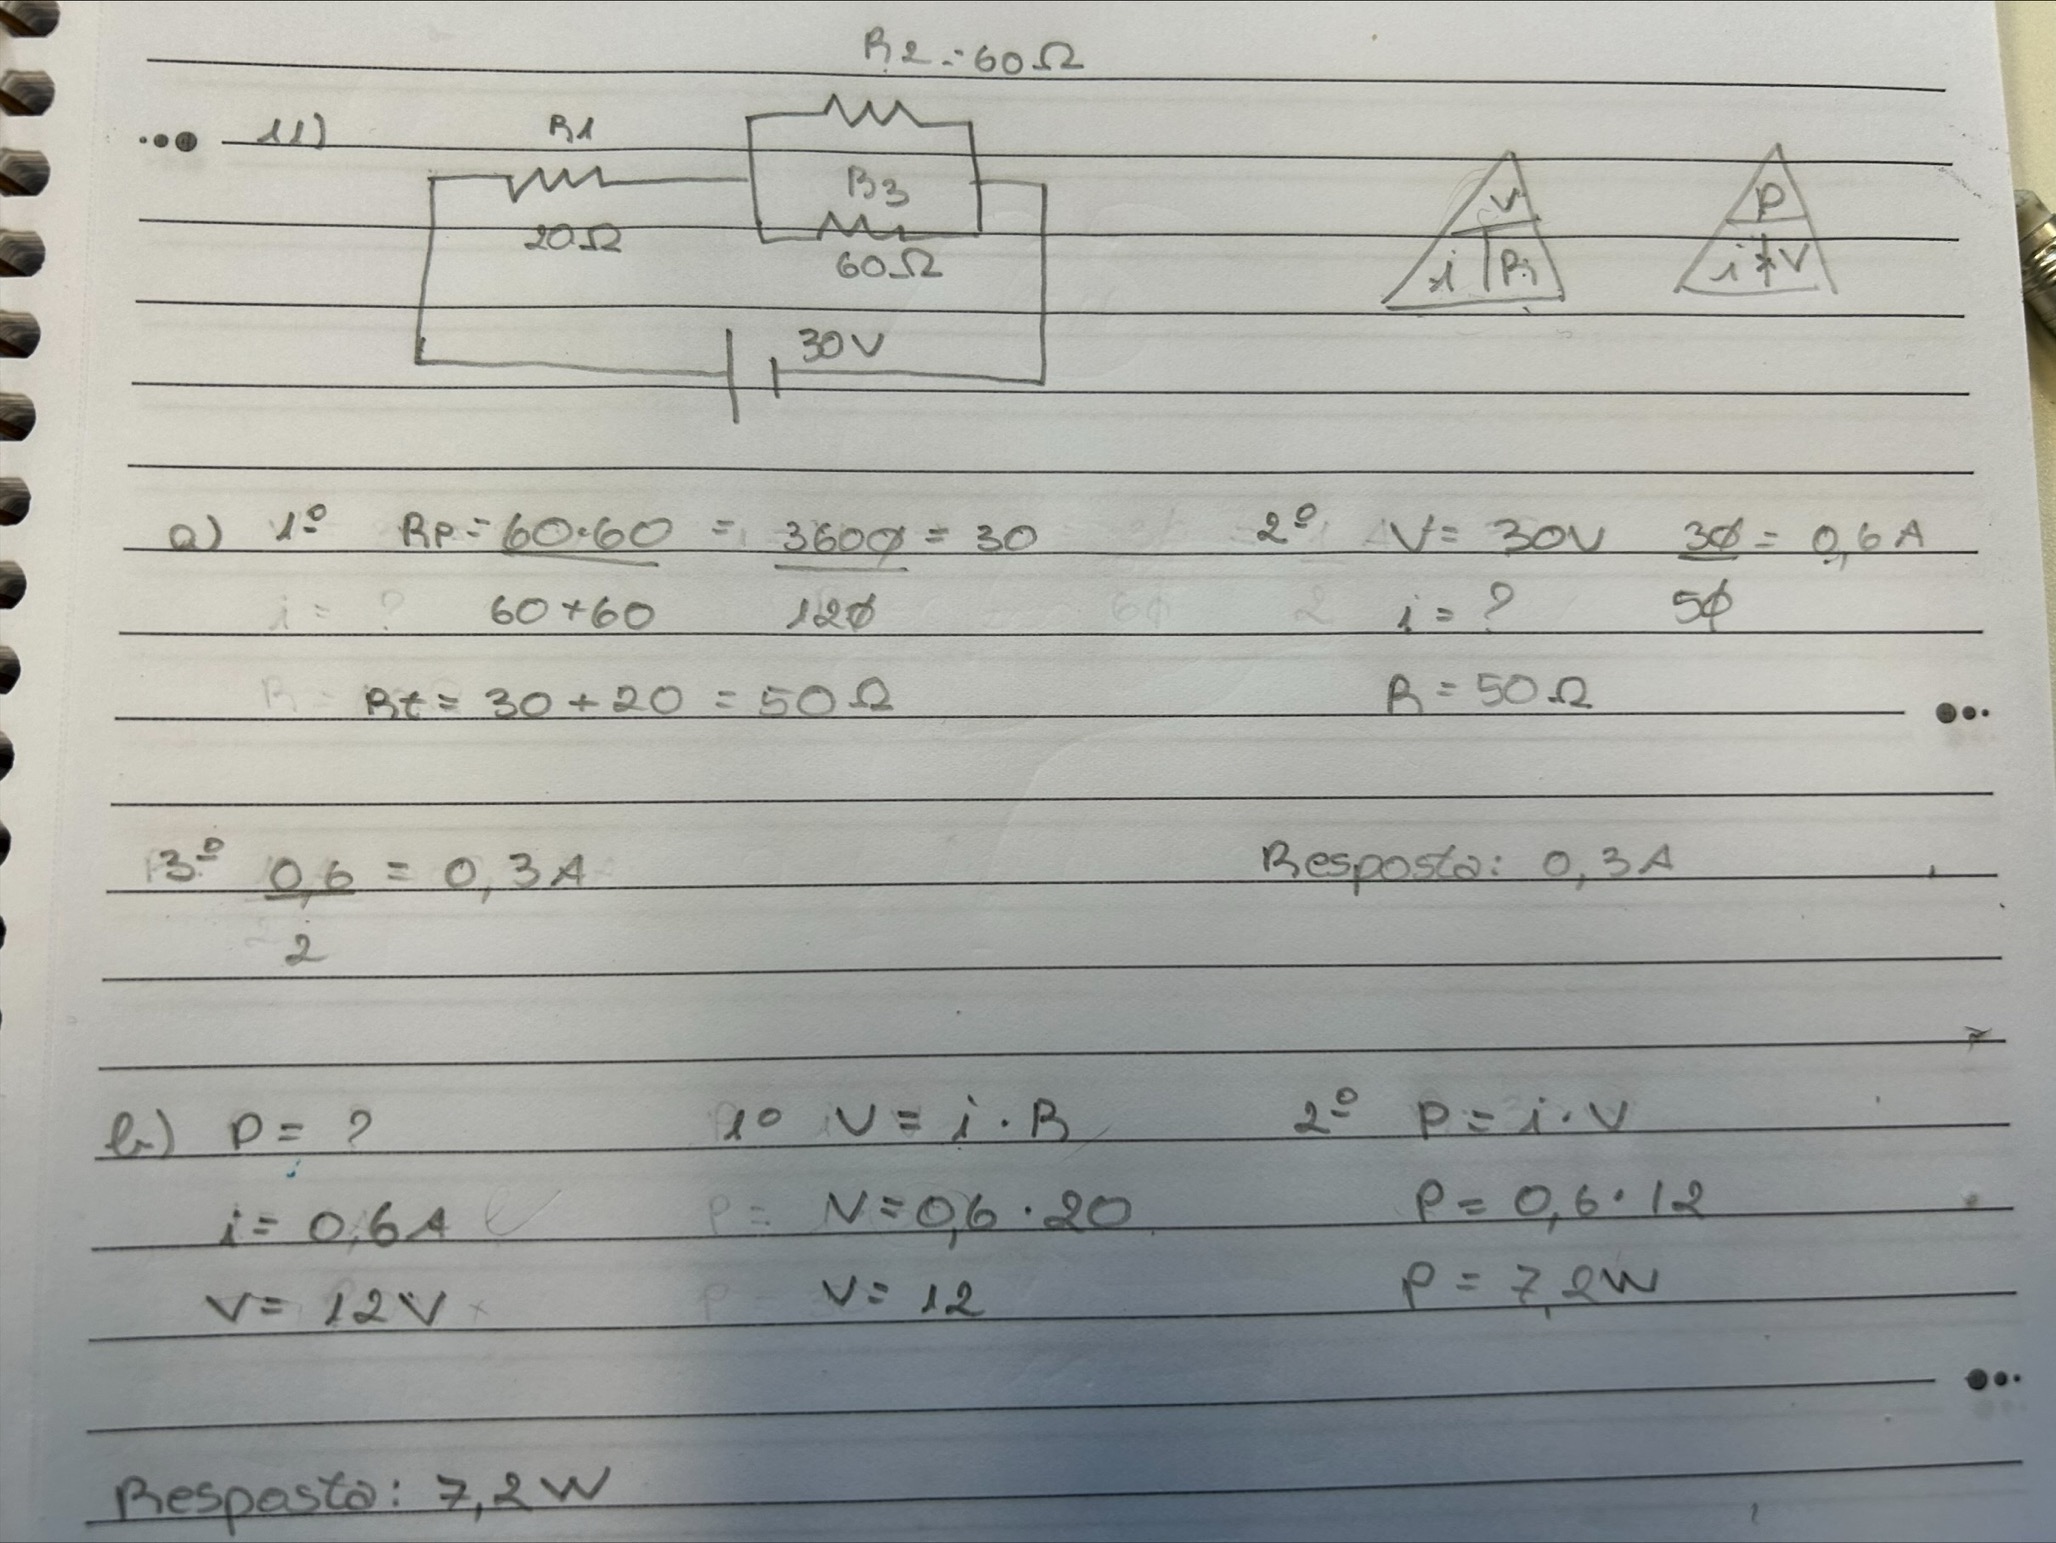 R2 = 60Ω
11)
R1
20Ω
R3
60Ω
30V
V
i R
P
i * V
a) 1º Rp = 60·60 = 3600 = 30
60+60 120
Rt = 30 + 20 = 50Ω
2º V = 30V 30 = 0,6 A
i = ? 50
R = 50Ω
3º 0,6 = 0,3A
2
Resposta: 0,3A
b) P = ?
i = 0,6A
V = 12V
1º V = i · R
V = 0,6 · 20
V = 12
2º P = i · V
P = 0,6 · 12
P = 7,2W
Resposta: 7,2W